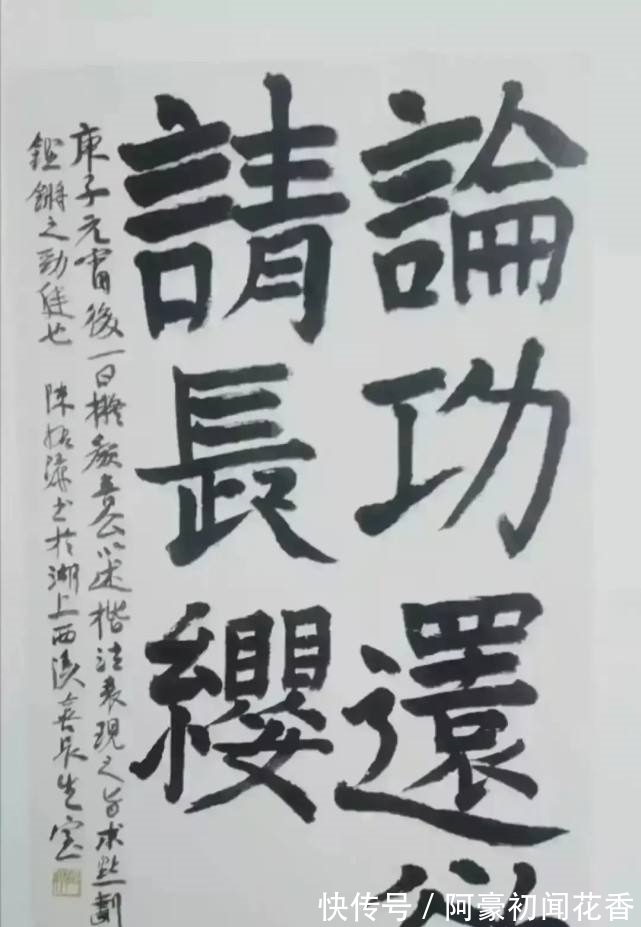 論功還
請長纓
庚子元宵後一日擬顏魯公以述楷法表現之旨求點劃
鏗鏘之勁健也 陳振濂書於湖上西溪喜長生室
快传号/阿豪初闻花香